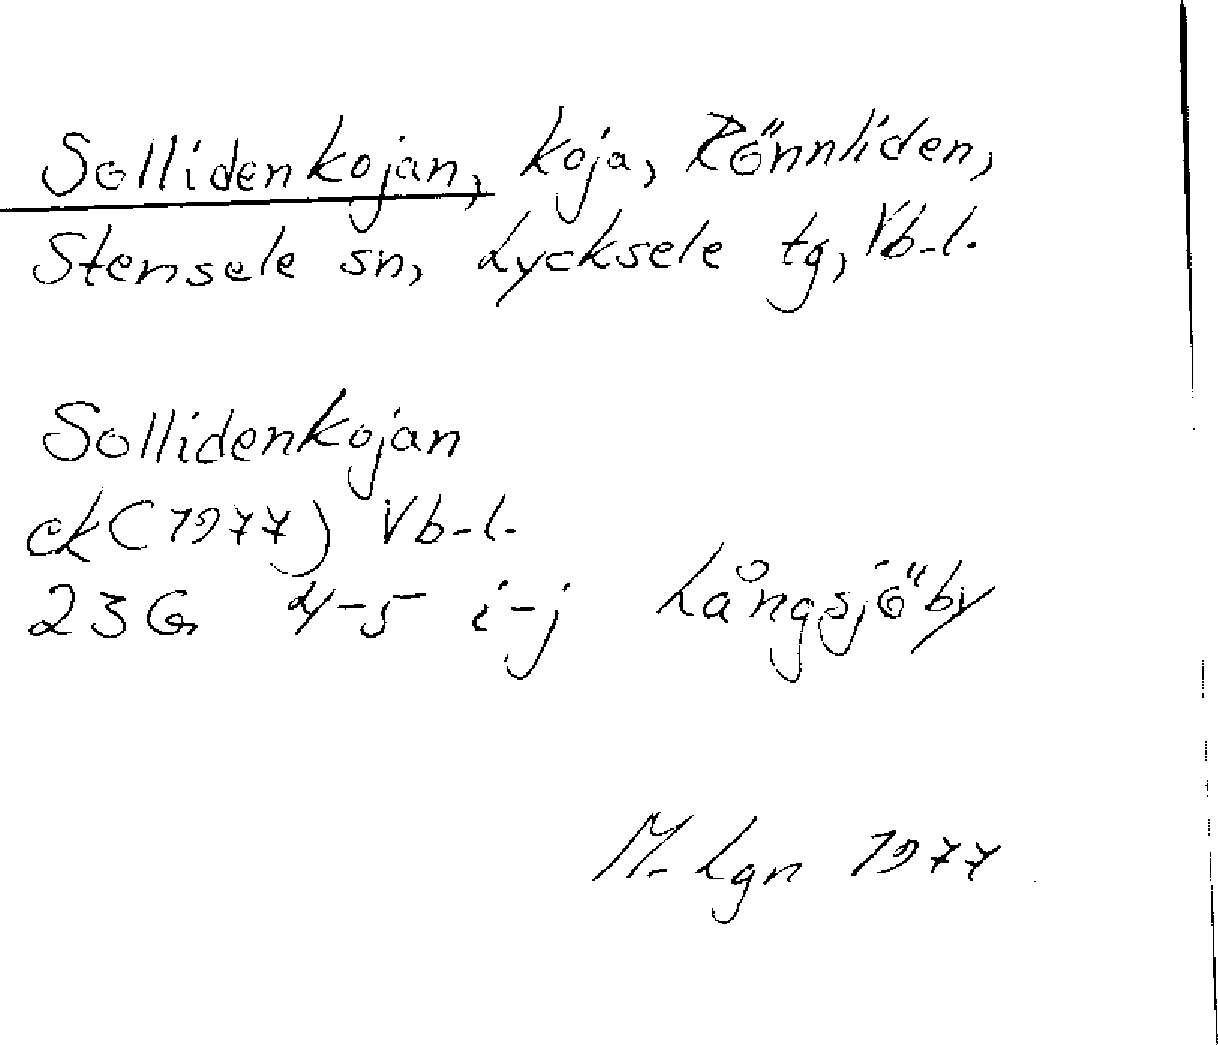 Sollidenkojan, koja, Rönnliden,
Stensele sn, Lycksele tg, Vb-l.
Sollidenkojan
ek (1977) Vb-l.
23G 4-5 i-j Långsjöby
M. Lgn 1977